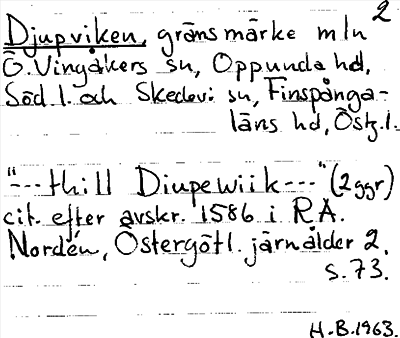 2
Djupviken, gränsmärke mln
Ö. Vingåkers sn, Oppunda hd,
Söd l. och Skedevi sn, Finspånga-
läns hd, Östg. l.
"---thill Diupewiik---" (2 ggr)
cit. efter avskr. 1586 i RA.
Nordén, Östergötl. järnålder 2,
s. 73.
H.B. 1963.